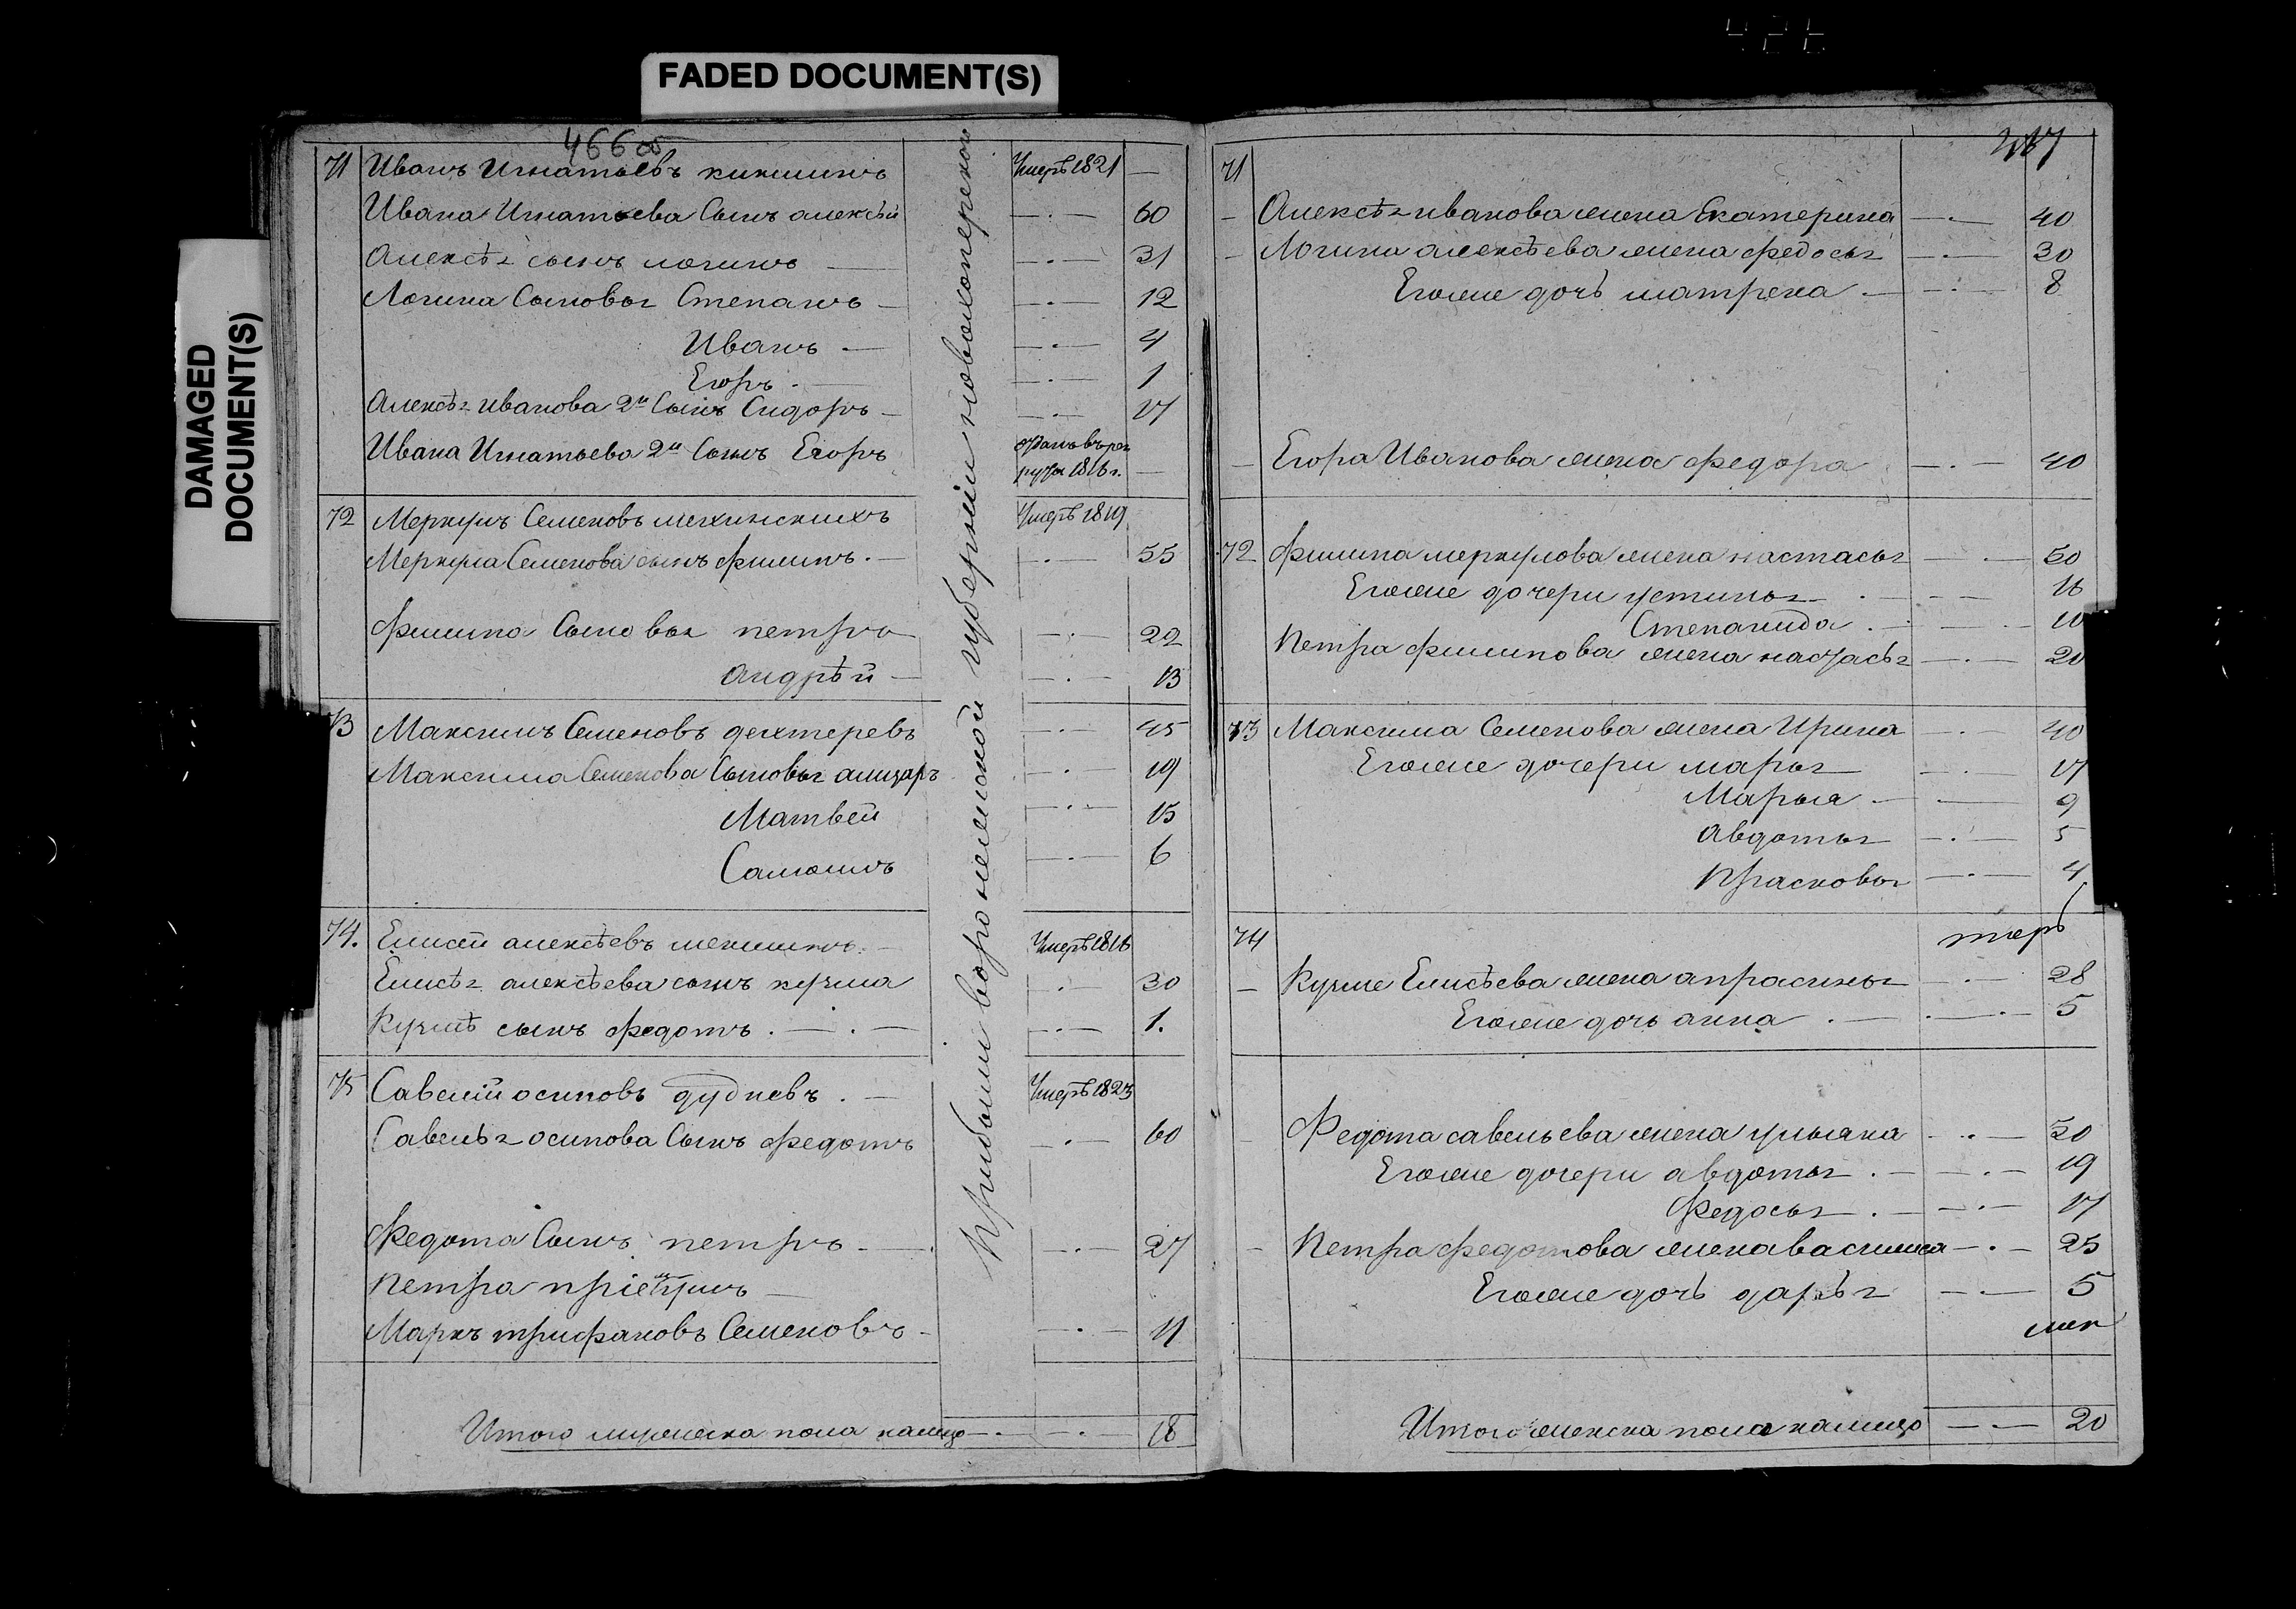 FADED DOCUMENT(S)
DAMAGED
DOCUMENT(S)
466 об
71 Иванъ Игнатьевъ Умеръ 1821 —
Ивана Игнатьева Сынъ алексѣй — 60
Алексѣя сынъ логинъ — 31
Логина Сыновья Степанъ — 12
Иванъ — 4
Егоръ — 1
Алексѣя иванова 2й Сынъ Сидоръ — 17
Ивана Игнатьева 2й Сынъ Егоръ отданъ въ рек
руты 1816 г. —
72 Меркулъ Семеновъ Умеръ 1819
Меркула Семенова сынъ филипъ — 55
Филипа Сыновья петръ — 22
андрѣй — 13
73 Максимъ Семеновъ дехтеревъ — 45
Максима Семенова Сыновья — 19
Матвей — 15
Самоилъ — 6
74. Елисей алексѣевъ Умеръ 1816
Елисѣя алексѣева сынъ кузма — 30
Кузмѣ сынъ федотъ — 1.
75 Савелій осиповъ дудневъ Умеръ 1823
Савелѣя осипова Сынъ федотъ — 60
Федота Сынъ петръ — 27
Петра
Маркъ трифановъ Семеновъ — 11
Итого мужеска пола налицо — 18
Прибыли воронежской губерніи
467
71
Алексѣя иванова жена Екатерина — 40
Логина алексѣева жена федосья — 30
Егоже дочь матрена — 8
Егора Иванова жена федора — 40
72 Филипа меркулова жена настасья — 50
Егоже дочери устинья — 16
Степанида — 10
Петра филипова жена настасья — 20
73 Максима Семенова жена Ирина — 40
Егоже дочери марья — 17
Марья — 9
Авдотья — 5
Прасковья — 4
74
Кузме Елисѣева жена апросинья — 28
Егоже дочь анна — 5
Федота савельева жена ульяна — 50
Егоже дочери авдотья — 19
Федосья — 17
Петра федотова жена василиса — 25
Егоже дочь дарья — 5
Итого женска пола налицо — 20